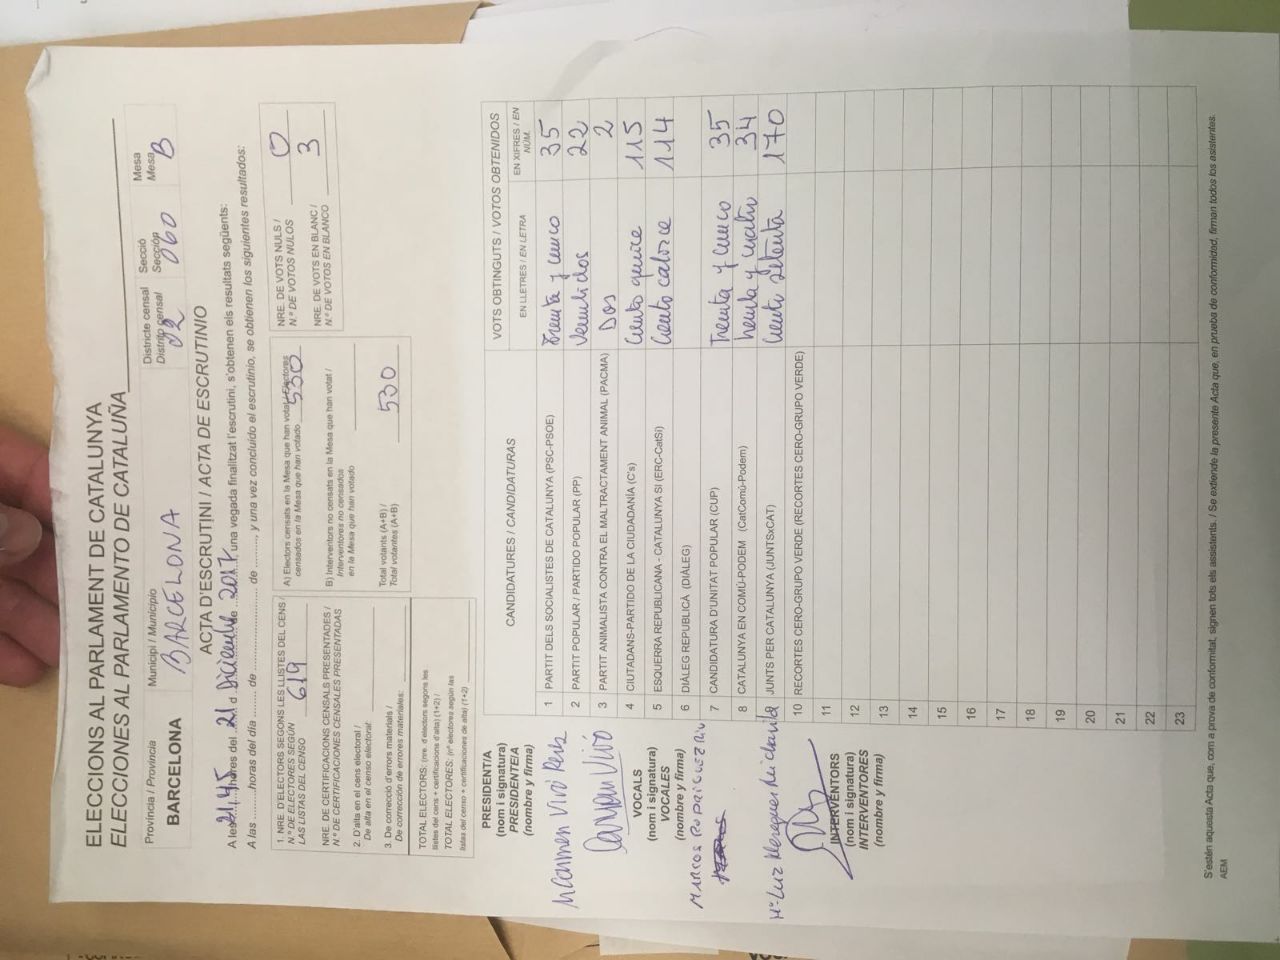 ELECCIONS AL PARLAMENT DE CATALUNYA
ELECCIONES AL PARLAMENTO DE CATALUÑA
Província / Provincia
BARCELONA
Municipi / Municipio
BARCELONA
Districte censal
Distrito censal
02
Secció
Sección
060
Mesa
Mesa
B
ACTA D'ESCRUTINI / ACTA DE ESCRUTINIO
A les 21,45 hores del 21 d Diciembre de 2017, una vegada finalitzat l'escrutini, s'obtenen els resultats següents:
A las ..........horas del día ........ de ........................... de ........., y una vez concluido el escrutinio, se obtienen los siguientes resultados:
1. NRE. D'ELECTORS SEGONS LES LLISTES DEL CENS /
N.º DE ELECTORES SEGÚN
LAS LISTAS DEL CENSO 619
NRE. DE CERTIFICACIONS CENSALS PRESENTADES /
N.º DE CERTIFICACIONES CENSALES PRESENTADAS
2. D'alta en el cens electoral /
De alta en el censo electoral:
3. De correcció d'errors materials /
De corrección de errores materiales:
TOTAL ELECTORS: (nre. d'electors segons les
llistes de cens + certificacions d'alta) (1+2) /
TOTAL ELECTORES: (nº electores según las
listas del censo + certificaciones de alta) (1+2)
A) Electors censats en la Mesa que han votat / Electores
censados en la Mesa que han votado 530
B) Interventors no censats en la Mesa que han votat /
Interventores no censados
en la Mesa que han votado
Total votants (A+B) /
Total votantes (A+B) 530
NRE. DE VOTS NULS /
N.º DE VOTOS NULOS 0
NRE. DE VOTS EN BLANC /
N.º DE VOTOS EN BLANCO 3
PRESIDENT/A
(nom i signatura)
PRESIDENTE/A
(nombre y firma)
VOCALS
(nom i signatura)
VOCALES
(nombre y firma)
INTERVENTORS
(nom i signatura)
INTERVENTORES
(nombre y firma)
CANDIDATURES / CANDIDATURAS
VOTS OBTINGUTS / VOTOS OBTENIDOS
EN LLETRES / EN LETRA
EN XIFRES / EN NÚM.
1 PARTIT DELS SOCIALISTES DE CATALUNYA (PSC-PSOE) Treinta y cinco 35
2 PARTIT POPULAR / PARTIDO POPULAR (PP) Veintidos 22
3 PARTIT ANIMALISTA CONTRA EL MALTRACTAMENT ANIMAL (PACMA) Dos 2
4 CIUTADANS-PARTIDO DE LA CIUDADANÍA (C's) Ciento quince 115
5 ESQUERRA REPUBLICANA - CATALUNYA SI (ERC-CatSí) Ciento catorce 114
6 DIÀLEG REPUBLICÀ (DIÀLEG)
7 CANDIDATURA D'UNITAT POPULAR (CUP) Treinta y cinco 35
8 CATALUNYA EN COMÚ-PODEM (CatComú-Podem) treinta y cuatro 34
9 JUNTS PER CATALUNYA (JUNTSxCAT) Ciento setenta 170
10 RECORTES CERO-GRUPO VERDE (RECORTES CERO-GRUPO VERDE)
11
12
13
14
15
16
17
18
19
20
21
22
23
S'estén aquesta Acta que, com a prova de conformitat, signen tots els assistents. / Se extiende la presente Acta que, en prueba de conformidad, firman todos los asistentes.
AEM